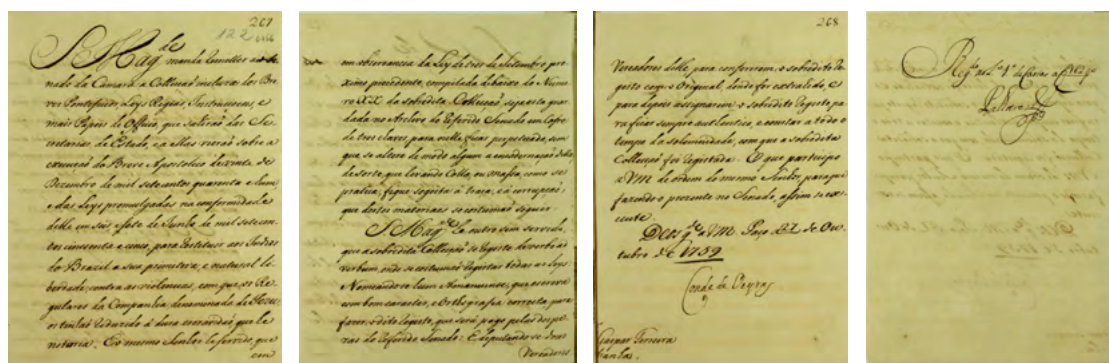 267
122
S Mag.de
manda remetter ao Se-
nado da Camara a Collecçaõ incluza dos Bre-
ves Pontificios, Leys Regias, Instrucçoens, e
mais Papeis de Officio, que sahiraõ das Se-
cretarias de Estado, e a ellas vieraõ sobre a
execuçaõ do Breve Apostolico de vinte de
Dezembro de mil setecentos quarenta e hum
e das Leys promulgadas na conformidade
delle em seis, e sete de Junho de mil setecen-
tos cincoenta e cinco, para restituir aos Indios
do Brazil a sua primitiva, e natural li-
berdade, contra as violencias, com que os Re-
gulares da Companhia denominada de Jezu
os tinhaõ reduzido á dura escravidaõ que he
notoria. E o mesmo Senhor he servido, que
em
em observancia da Ley de tres de Setembro pro-
ximo precedente, compilada debaixo do Nume-
ro XIX. da sobredita Collecçaõ, seja esta guar-
dada no Archivo do referido Senado em Cofre
de tres claves, para nelle ficar perpetuada, sem
que se altere de modo algum a encadernaçaõ della
de sorte, que levando Colla, ou massa, como se
pratica, fique sogeita á traça, e á corrupçaõ,
que destes materiaes se costumaõ seguir.
S. Mag.de he outro sim servido,
que a sobredita Collecçaõ se registe de verbo ad
verbum, onde se costumaõ registar todas as Leys
Nomeando-se hum Amanuense, que escreva
com bom caracter, e Orthografia correcta, para
fazer o dito registo, que será pago pelas despe-
zas do referido Senado: E deputando-se dous
Vereadores
268
Vereadores delle, para conferirem, o sobredito Re-
gisto com o Original, donde for extrahido, e
para depois assignarem o sobredito registo, pa-
ra ficar sempre authentico, e constar a todo o
tempo da solemnidade, com que a sobredita
Collecçaõ foi registada. O que participo
a VM de ordem do mesmo Senhor, para que
fazendo o prezente no Senado, assim se ex-
ecute.
Deos g.de a VM. Paço a 27 de Ou-
tubro de 1759
Conde de Oeyras
Gaspar Ferreira